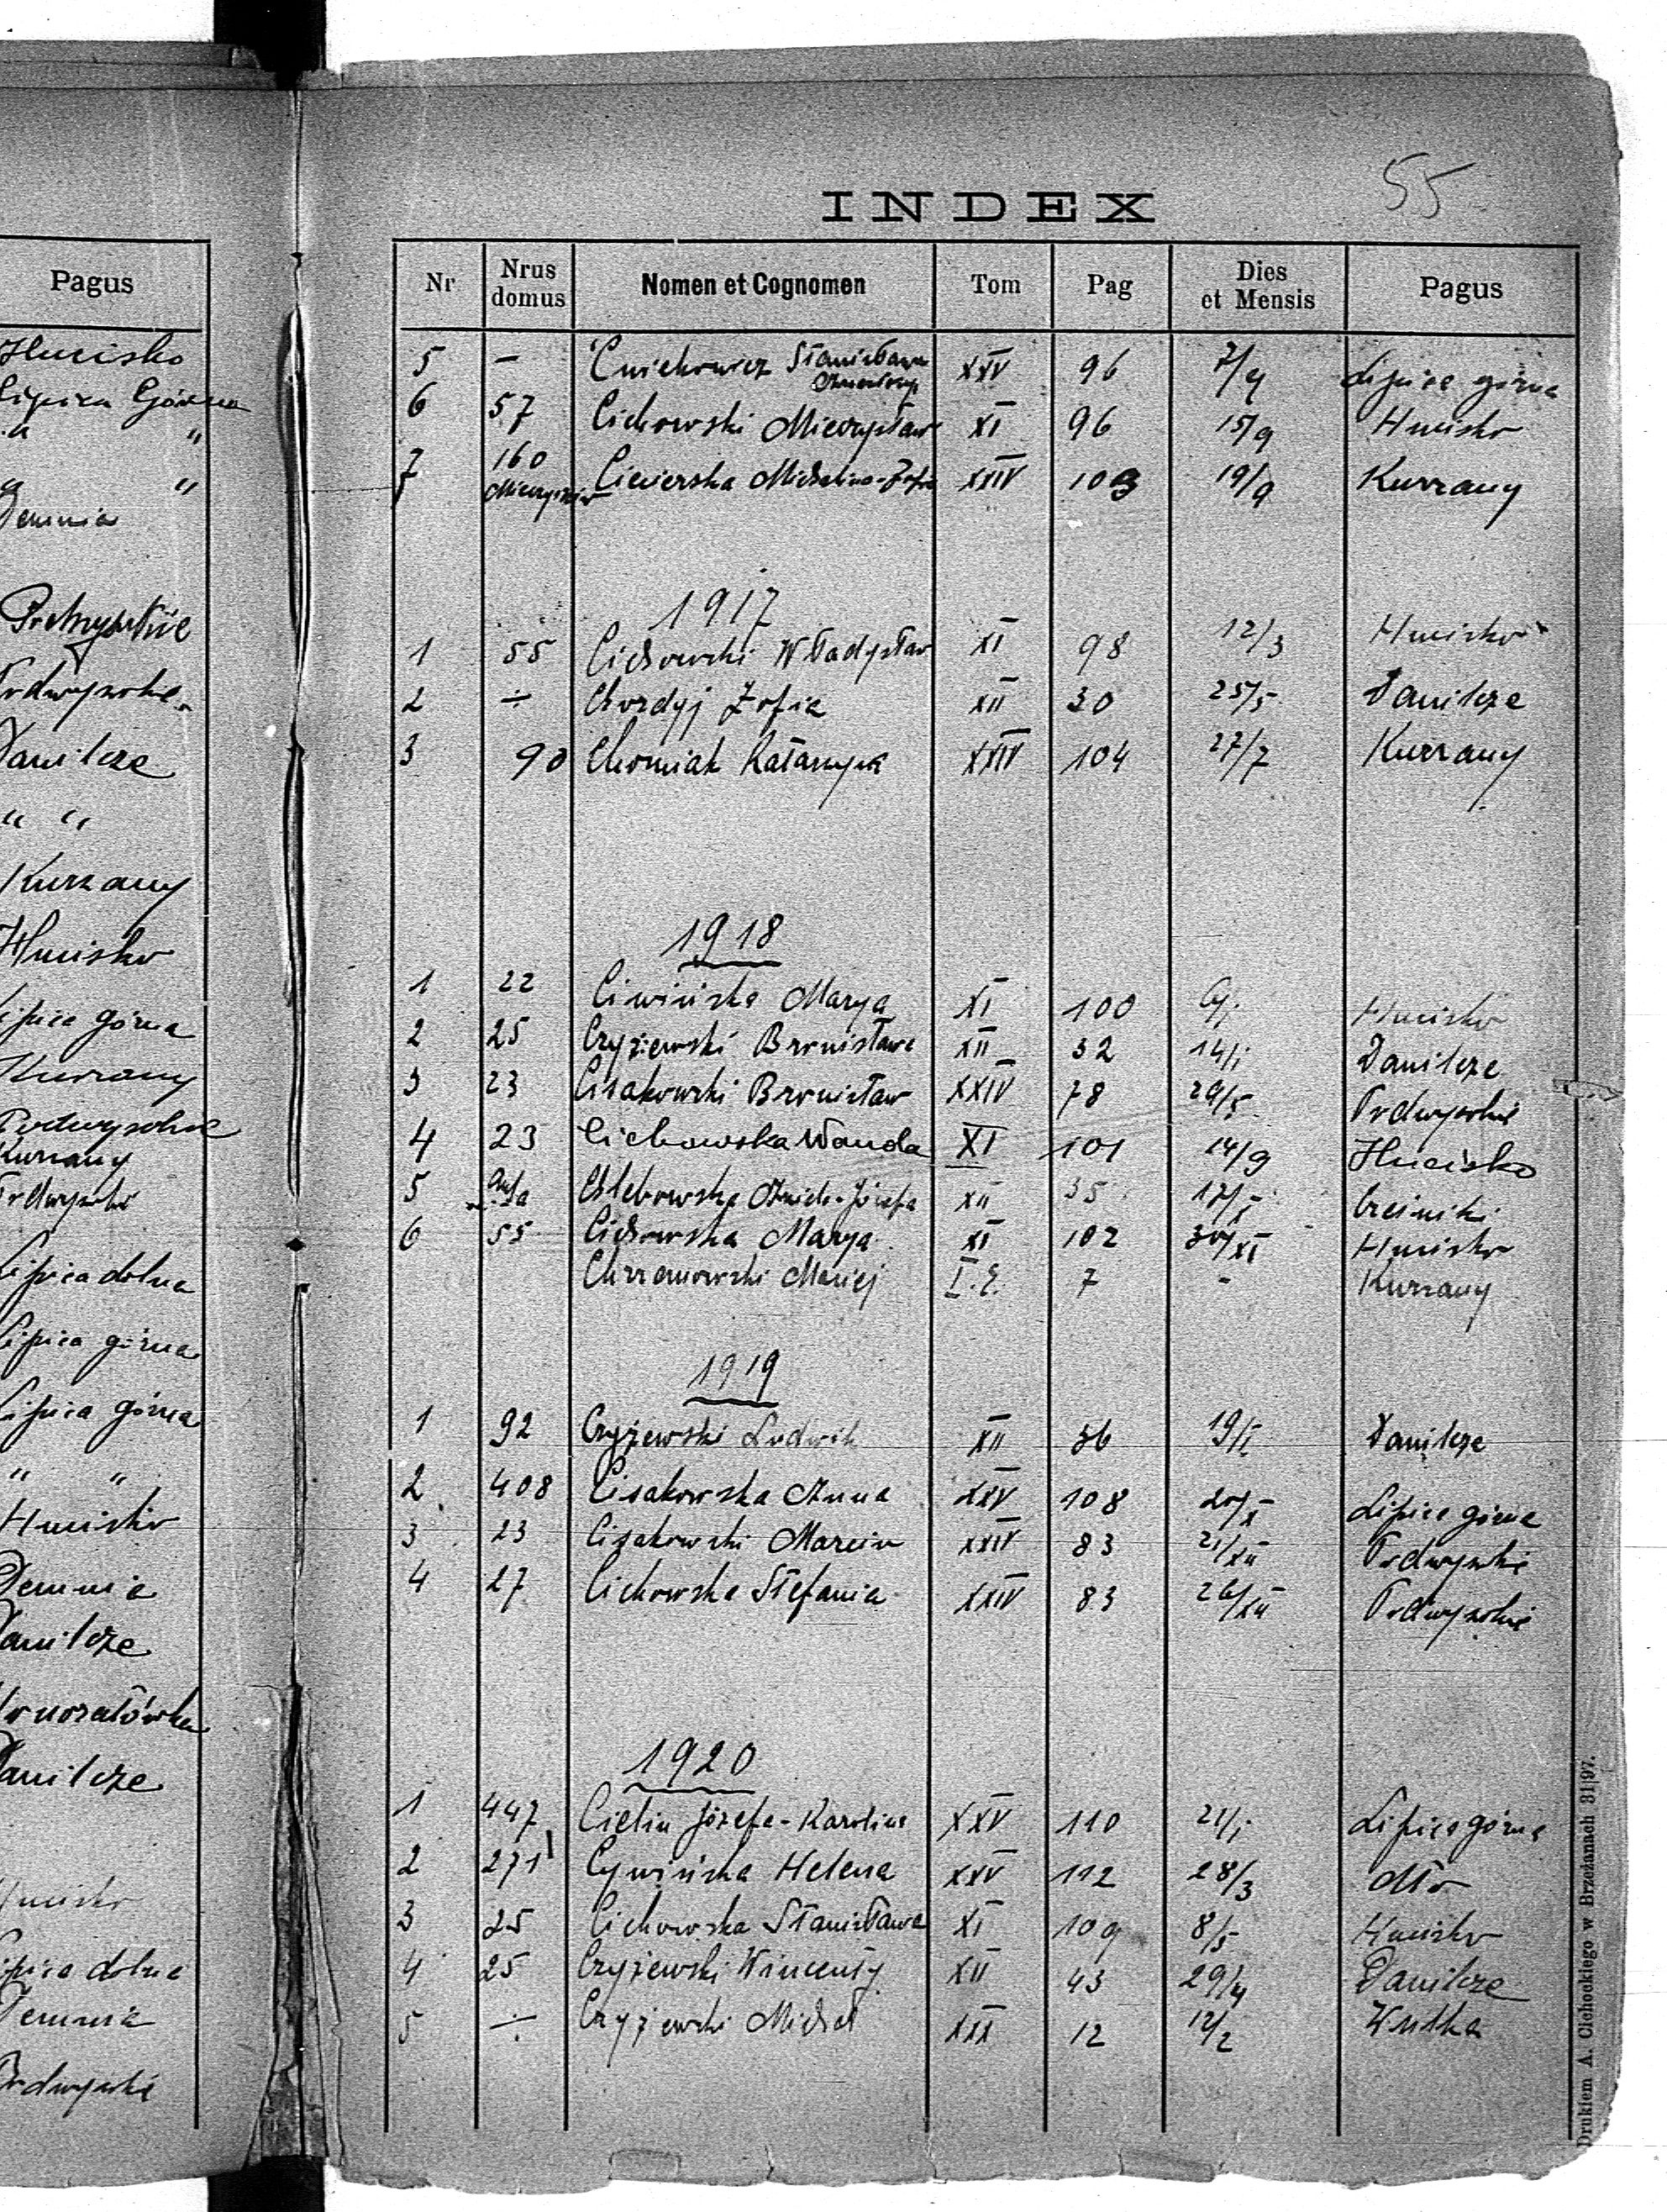 Pagus
Hucisko
Lipica Górna
" "
" "
Demnia
Podwysokie
Danilcze
" "
Kurzany
Hucisko
Lipica górna
Kurzany
Podwysokie
Kurzany
Podwysokie
Lipica dolna
Lipica górna
Lipica górna
" "
Hucisko
Demnia
Danilcze
Honoratówka
Danilcze
Hucisko
Lipica dolna
Demnia
Podwysokie
55
INDEX
Nr Nrus domus Nomen et Cognomen Tom Pag Dies et Mensis Pagus
5 — Ćwichowicz Stanisława XXV 96 7/4 Lipica górna
6 57 Cichowski Mieczysław XI 96 15/9 Hucisko
7 160 Ciewierska Michalina-Zofia XXIV 103 19/9 Kurzany
1917
1 55 Cichowski Władysław XI 98 12/3 Hucisko
2 ÷ Chordyj Zofia XII 30 25/5 Danilcze
3 90 Chomiak Katarzyna XXIV 104 27/7 Kurzany
1918
1 22 Ciwińska Marya XI 100 Hucisko
2 25 Czyżewski Bronisława XII 32 14/I Danilcze
3 23 Cisakowski Bronisław XXIV 78 29/5 Podwysokie
4 23 Cichowska Wanda XI 101 14/9 Hucisko
5 Chlebowska Józefa XII 35 17/X
6 55 Cichowska Marya XI 102 30/XI Hucisko
Chrzanowski Maciej I.E. 7 - Kurzany
1919
1 92 Czyżewski Ludwik XII 36 19/I Danilcze
2 408 Cisakowska Anna XXV 108 20/X Lipica górna
3 23 Cisakowski Marcin XXIV 83 21/XII Podwysokie
4 27 Cichowska Stefania XXIV 83 26/XII Podwysokie
1920
1 447 Cielin Józefa-Karolina XXV 110 21/I Lipica górna
2 271 Cywińska Helena XXV 112 28/3 dtto
3 25 Cichowska Stanisława XI 109 8/5 Hucisko
4 25 Czyżewski Wincenty XII 43 29/4 Danilcze
5 ÷ Czyżewski Michał XIX 12 12/2 Wulka
Drukiem A. Cichockiego w Brzeżanach 31|97.